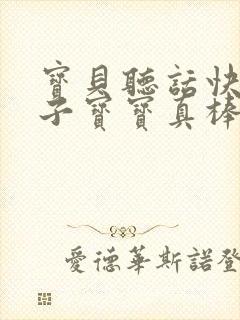 寶貝聽話快
子寶寶真棒
愛德華斯諾登